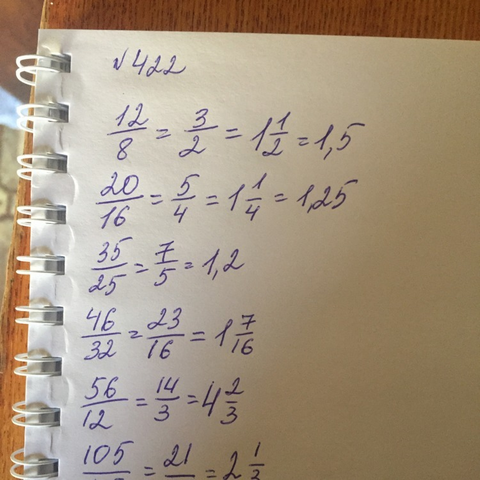 №422
12/8 = 3/2 = 1 1/2 = 1,5
20/16 = 5/4 = 1 1/4 = 1,25
35/25 = 7/5 = 1,2
46/32 = 23/16 = 1 7/16
56/12 = 14/3 = 4 2/3
105/ = 21/ = 2 1/3